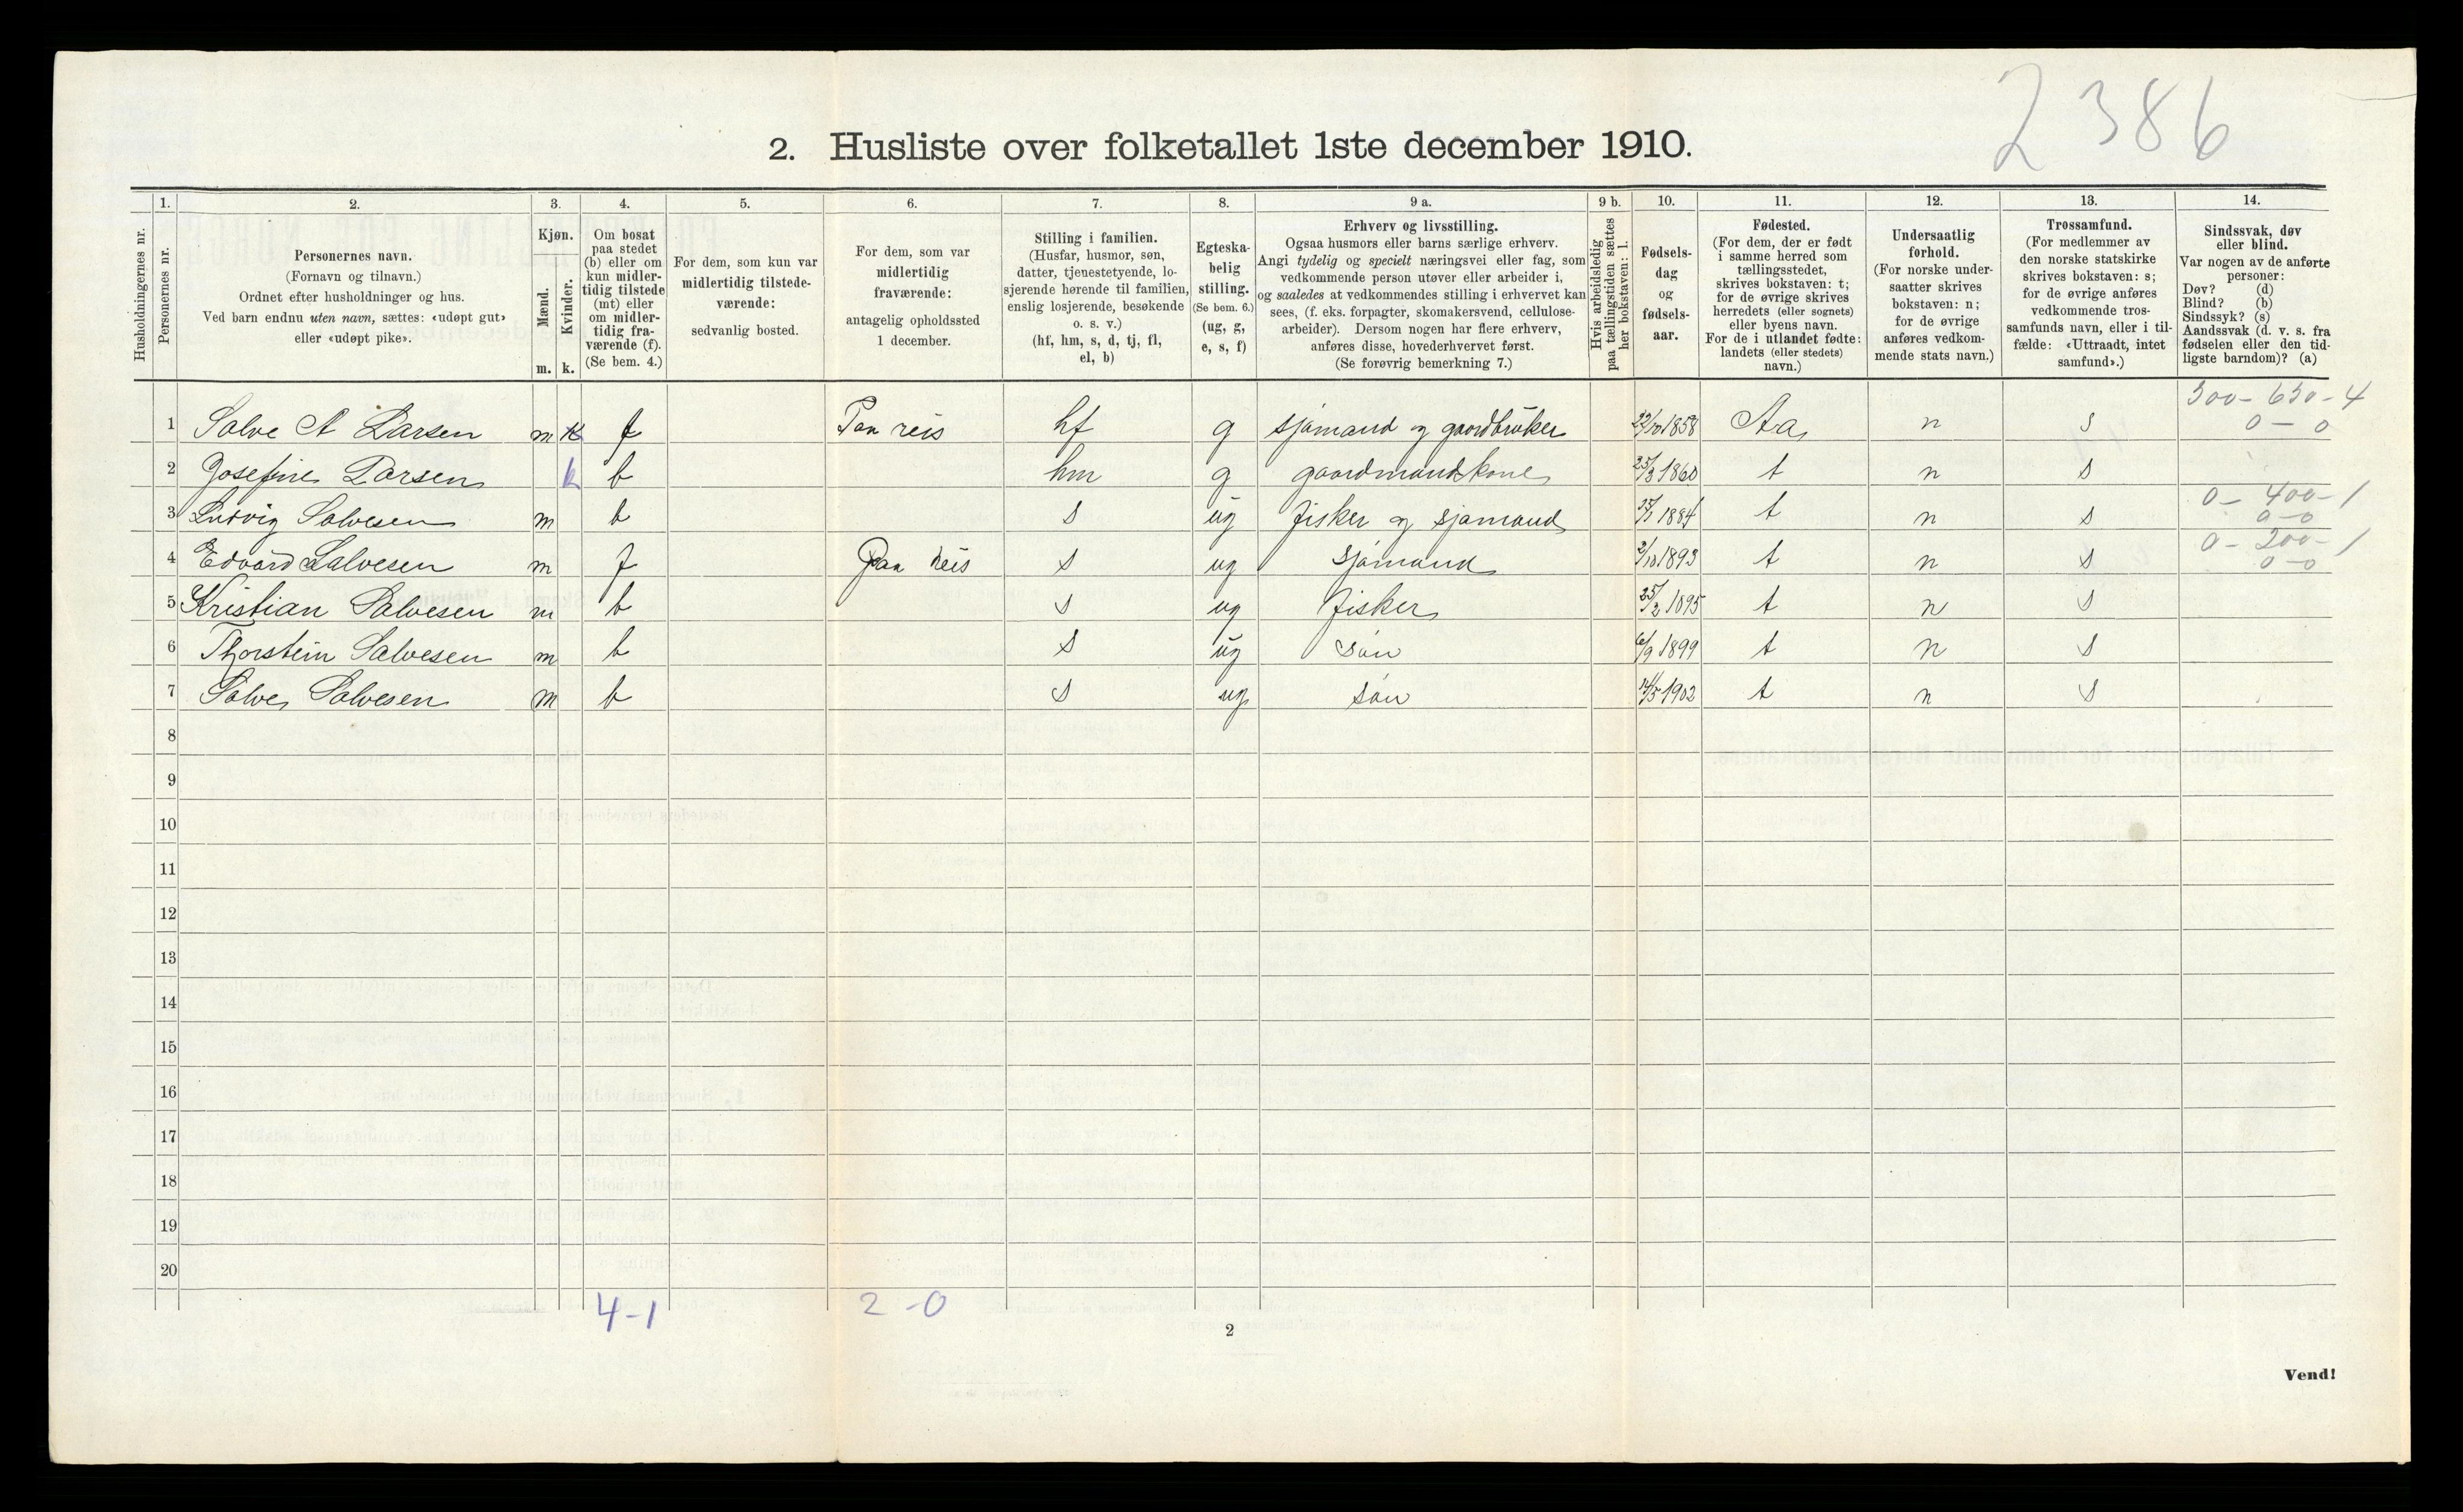 2386
2. Husliste over folketallet 1ste december 1910.
Husholdningernes nr.
1.
Personernes nr.
2.
Personernes navn.
(Fornavn og tilnavn.)
Ordnet efter husholdninger og hus.
Ved barn endnu uten navn, sættes: «udøpt gut»
eller «udøpt pike».
3.
Kjøn.
Mænd.
Kvinder.
m. k.
4.
Om bosat
paa stedet
(b) eller om
kun midler-
tidig tilstede
(mt) eller
om midler-
tidig fra-
værende (f).
(Se bem. 4.)
5.
For dem, som kun var
midlertidig tilstede-
værende:
sedvanlig bosted.
6.
For dem, som var
midlertidig
fraværende:
antagelig opholdssted
1 december.
7.
Stilling i familien.
(Husfar, husmor, søn,
datter, tjenestetyende, lo-
sjerende hørende til familien,
enslig losjerende, besøkende
o. s. v.)
(hf, hm, s, d, tj, fl,
el, b)
8.
Egteska-
belig
stilling.
(Se bem. 6.)
(ug, g,
e, s, f)
9 a.
Erhverv og livsstilling.
Ogsaa husmors eller barns særlige erhverv.
Angi tydelig og specielt næringsvei eller fag, som
vedkommende person utøver eller arbeider i,
og saaledes at vedkommendes stilling i erhvervet kan
sees, (f. eks. forpagter, skomakersvend, cellulose-
arbeider). Dersom nogen har flere erhverv,
anføres disse, hovederhvervet først.
(Se forøvrig bemerkning 7.)
9 b.
Hvis arbeidsledig
paa tællingstiden sættes
her bokstaven: l.
10.
Fødsels-
dag
og
fødsels-
aar.
11.
Fødested.
(For dem, der er født
i samme herred som
tællingsstedet,
skrives bokstaven: t;
for de øvrige skrives
herredets (eller sognets)
eller byens navn.
For de i utlandet fødte:
landets (eller stedets)
navn.)
12.
Undersaatlig
forhold.
(For norske under-
saatter skrives
bokstaven: n;
for de øvrige
anføres vedkom-
mende stats navn.)
13.
Trossamfund.
(For medlemmer av
den norske statskirke
skrives bokstaven: s;
for de øvrige anføres
vedkommende tros-
samfunds navn, eller i til-
fælde: «Uttraadt, intet
samfund».)
14.
Sindssvak, døv
eller blind.
Var nogen av de anførte
personer:
Døv? (d)
Blind? (b)
Sindssyk? (s)
Aandssvak (d. v. s. fra
fødselen eller den tid-
ligste barndom)? (a)
300 - 650 - 4
1 Salve A Larsen m k f Paa reis hf g sjømand og gaardbruker 22/10 1858 Aa n s 0 - 0
2 Josefine Larsen k b hm g gaardmandskone 25/3 1860 t n s
0 - 400 - 1
3 Ludvig Salvesen m b s ug fisker og sjømand 1884 t n s 0 - 0
0 - 200 - 1
4 Edvard Salvesen m f Paa reis s ug sjømand 2/10 1893 t n s 0 - 0
5 Kristian Salvesen m b s ug fisker 25/2 1895 t n s
6 Thorstein Salvesen m b s ug søn 6/9 1899 t n s
7 Salve Salvesen m b s ug søn 14/5 1902 t n s
8
9
10
11
12
13
14
15
16
17
18
19
20
4-1 2-0
2
Vend!